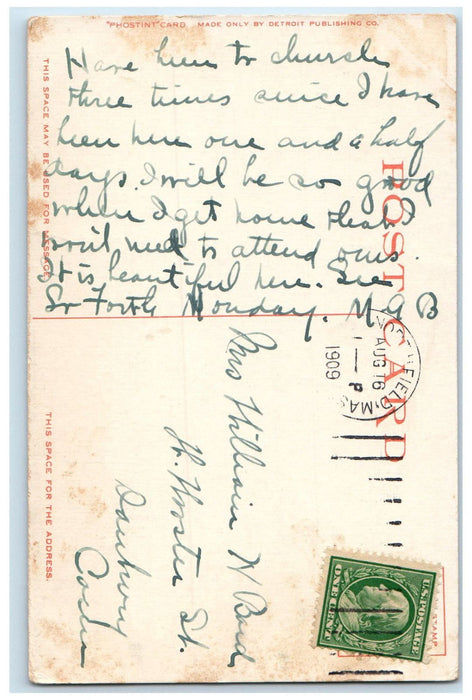 "PHOSTINT" CARD MADE ONLY BY DETROIT PUBLISHING CO.
THIS SPACE MAY BE USED FOR MESSAGE.
POST CARD
Have been to church
three times since I have
been here one and a half
days. I will be so good
when I get home that I
won't need to attend ours.
It is beautiful here. See
So Forth Monday. M G B
AUG 16
1 - P
1909
MAS
Mrs William W Bond
W. Wooster St.
Danbury
Conn
THIS SPACE FOR THE ADDRESS.
U.S. POSTAGE
ONE CENT
STAMP